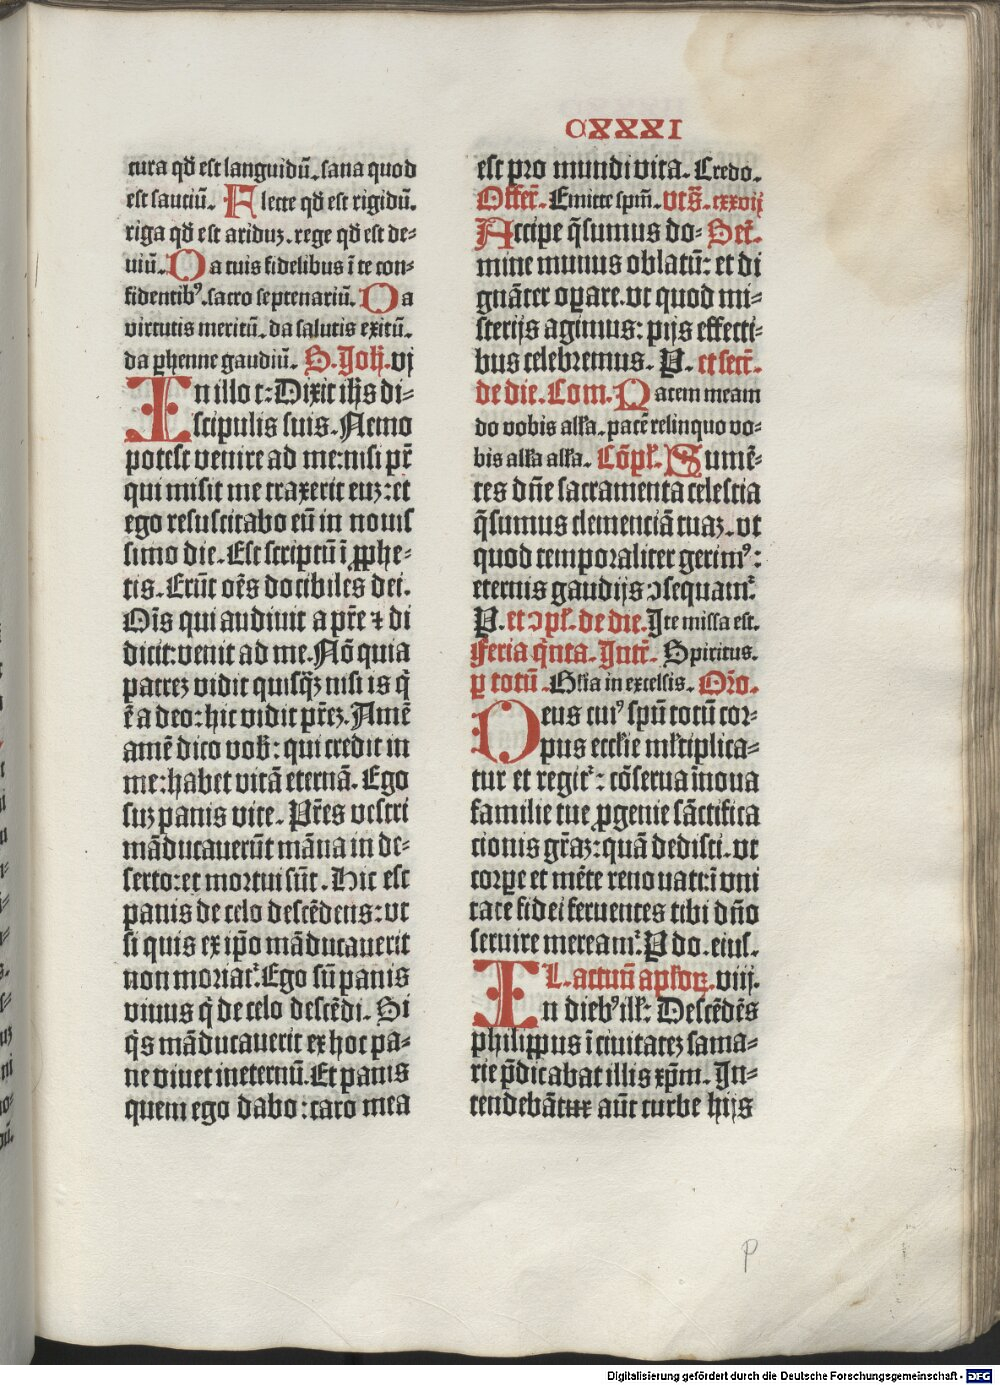 CXXXI
cura qd̄ est languidū. sana quod
est sautiū. Flecte qd̄ est rigidū.
riga qd̄ est ariduz. rege qd̄ est de-
uiū. Da tuis fidelibus ī te con-
fidentibꝰ. sacro septenariū. Da
virtutis meritū. da salutis exitū.
da ꝑhenne gaudiū. S. Joh̄. vj
In illo t: Dixit ih̄s di-
scipulis suis. Nemo
potest venire ad me: nisi pr̄
qui misit me traxerit euz: et
ego resuscitabo eū in nouis
simo die. Est scriptū ī ꝓphe-
tis. Erūt oēs docibiles dei.
Oīs qui audiuit a pr̄e ⁊ di
dicit: venit ad me. Nō quia
patrez vidit quisq̄z nisi is q̄
ē a deo: hic vidit pr̄ez. Amē
amē dico vob̄: qui credit in
me: habet vitā eternā. Ego
suz panis vite. Pr̄es vestri
māducauerūt māna in de-
serto: et mortui sūt. Hic est
panis de celo descēdens: vt
si quis ex ip̄o māducauerit
non moriat᷑. Ego sū panis
viuus q̄ de celo descēdi. Si
q̄s māducauerit ex hoc pa-
ne viuet ineternū. Et panis
quem ego dabo: caro mea
est pro mundi vita. Credo.
Offer̄. Emitte spm̄. vts̄. cxxvij
Accipe q̄sumus do- Secr̄.
mine munus oblatū: et di
gnāter oꝑare. vt quod mi-
sterijs agimus: pijs effecti-
bus celebremus. P. et secr̄.
de die. Com. Pacem meam
do vobis alła. pacē relinquo vo-
bis alła alła. Cōpł. Sumē-
tes dn̄e sacramenta celestia
q̄sumus clemenciā tuaz. vt
quod temporaliter gerimꝰ:
eternis gaudijs ↄsequam᷑.
P. et ↄpł. de die. Ite missa est.
Feria q̄nta. Intr̄. Spiritus.
ꝑ totū. Głia in excelsis. Oro.
Deus cuiꝰ spū totū cor-
pus eccłie młtiplica-
tur et regit᷑: cōserua ī noua
familie tue ꝓgenie sāctifica
cionis gr̄az: quā dedisti. vt
corꝑe et mēte renouati: ī vni
tate fidei feruentes tibi dn̄o
seruire meream᷑. P do. eius.
L. actuū apłoꝝ. viij.
In diebꝰ iłł: Descēdēs
philippus ī ciuitatez sama-
rie p̄dicabat illis xp̄m. In-
tendebātur aūt turbe hijs
p
Digitalisierung gefördert durch die Deutsche Forschungsgemeinschaft - DFG